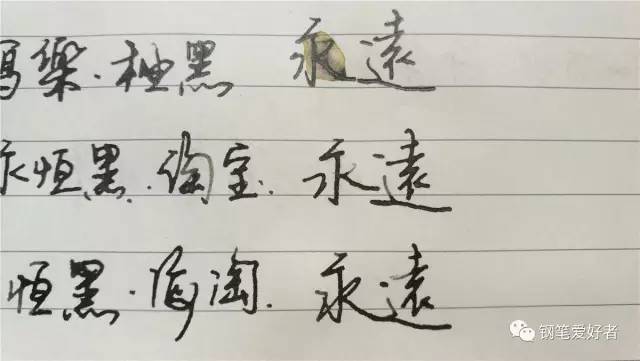 寫樂·極黑 永遠
永恒黑·淘宝. 永遠
恒黑·海淘. 永遠
钢笔爱好者